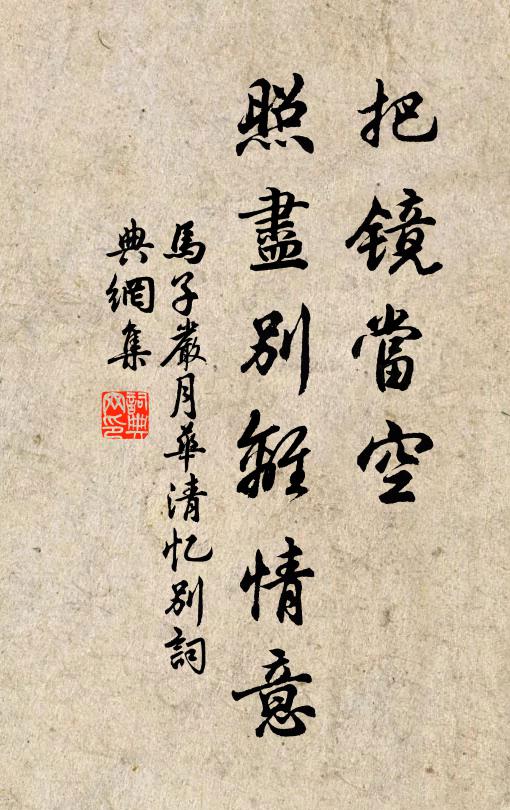 把镜當空
照盡別離情意
馬子嚴月華清忆別詞
典網集
詞典网印